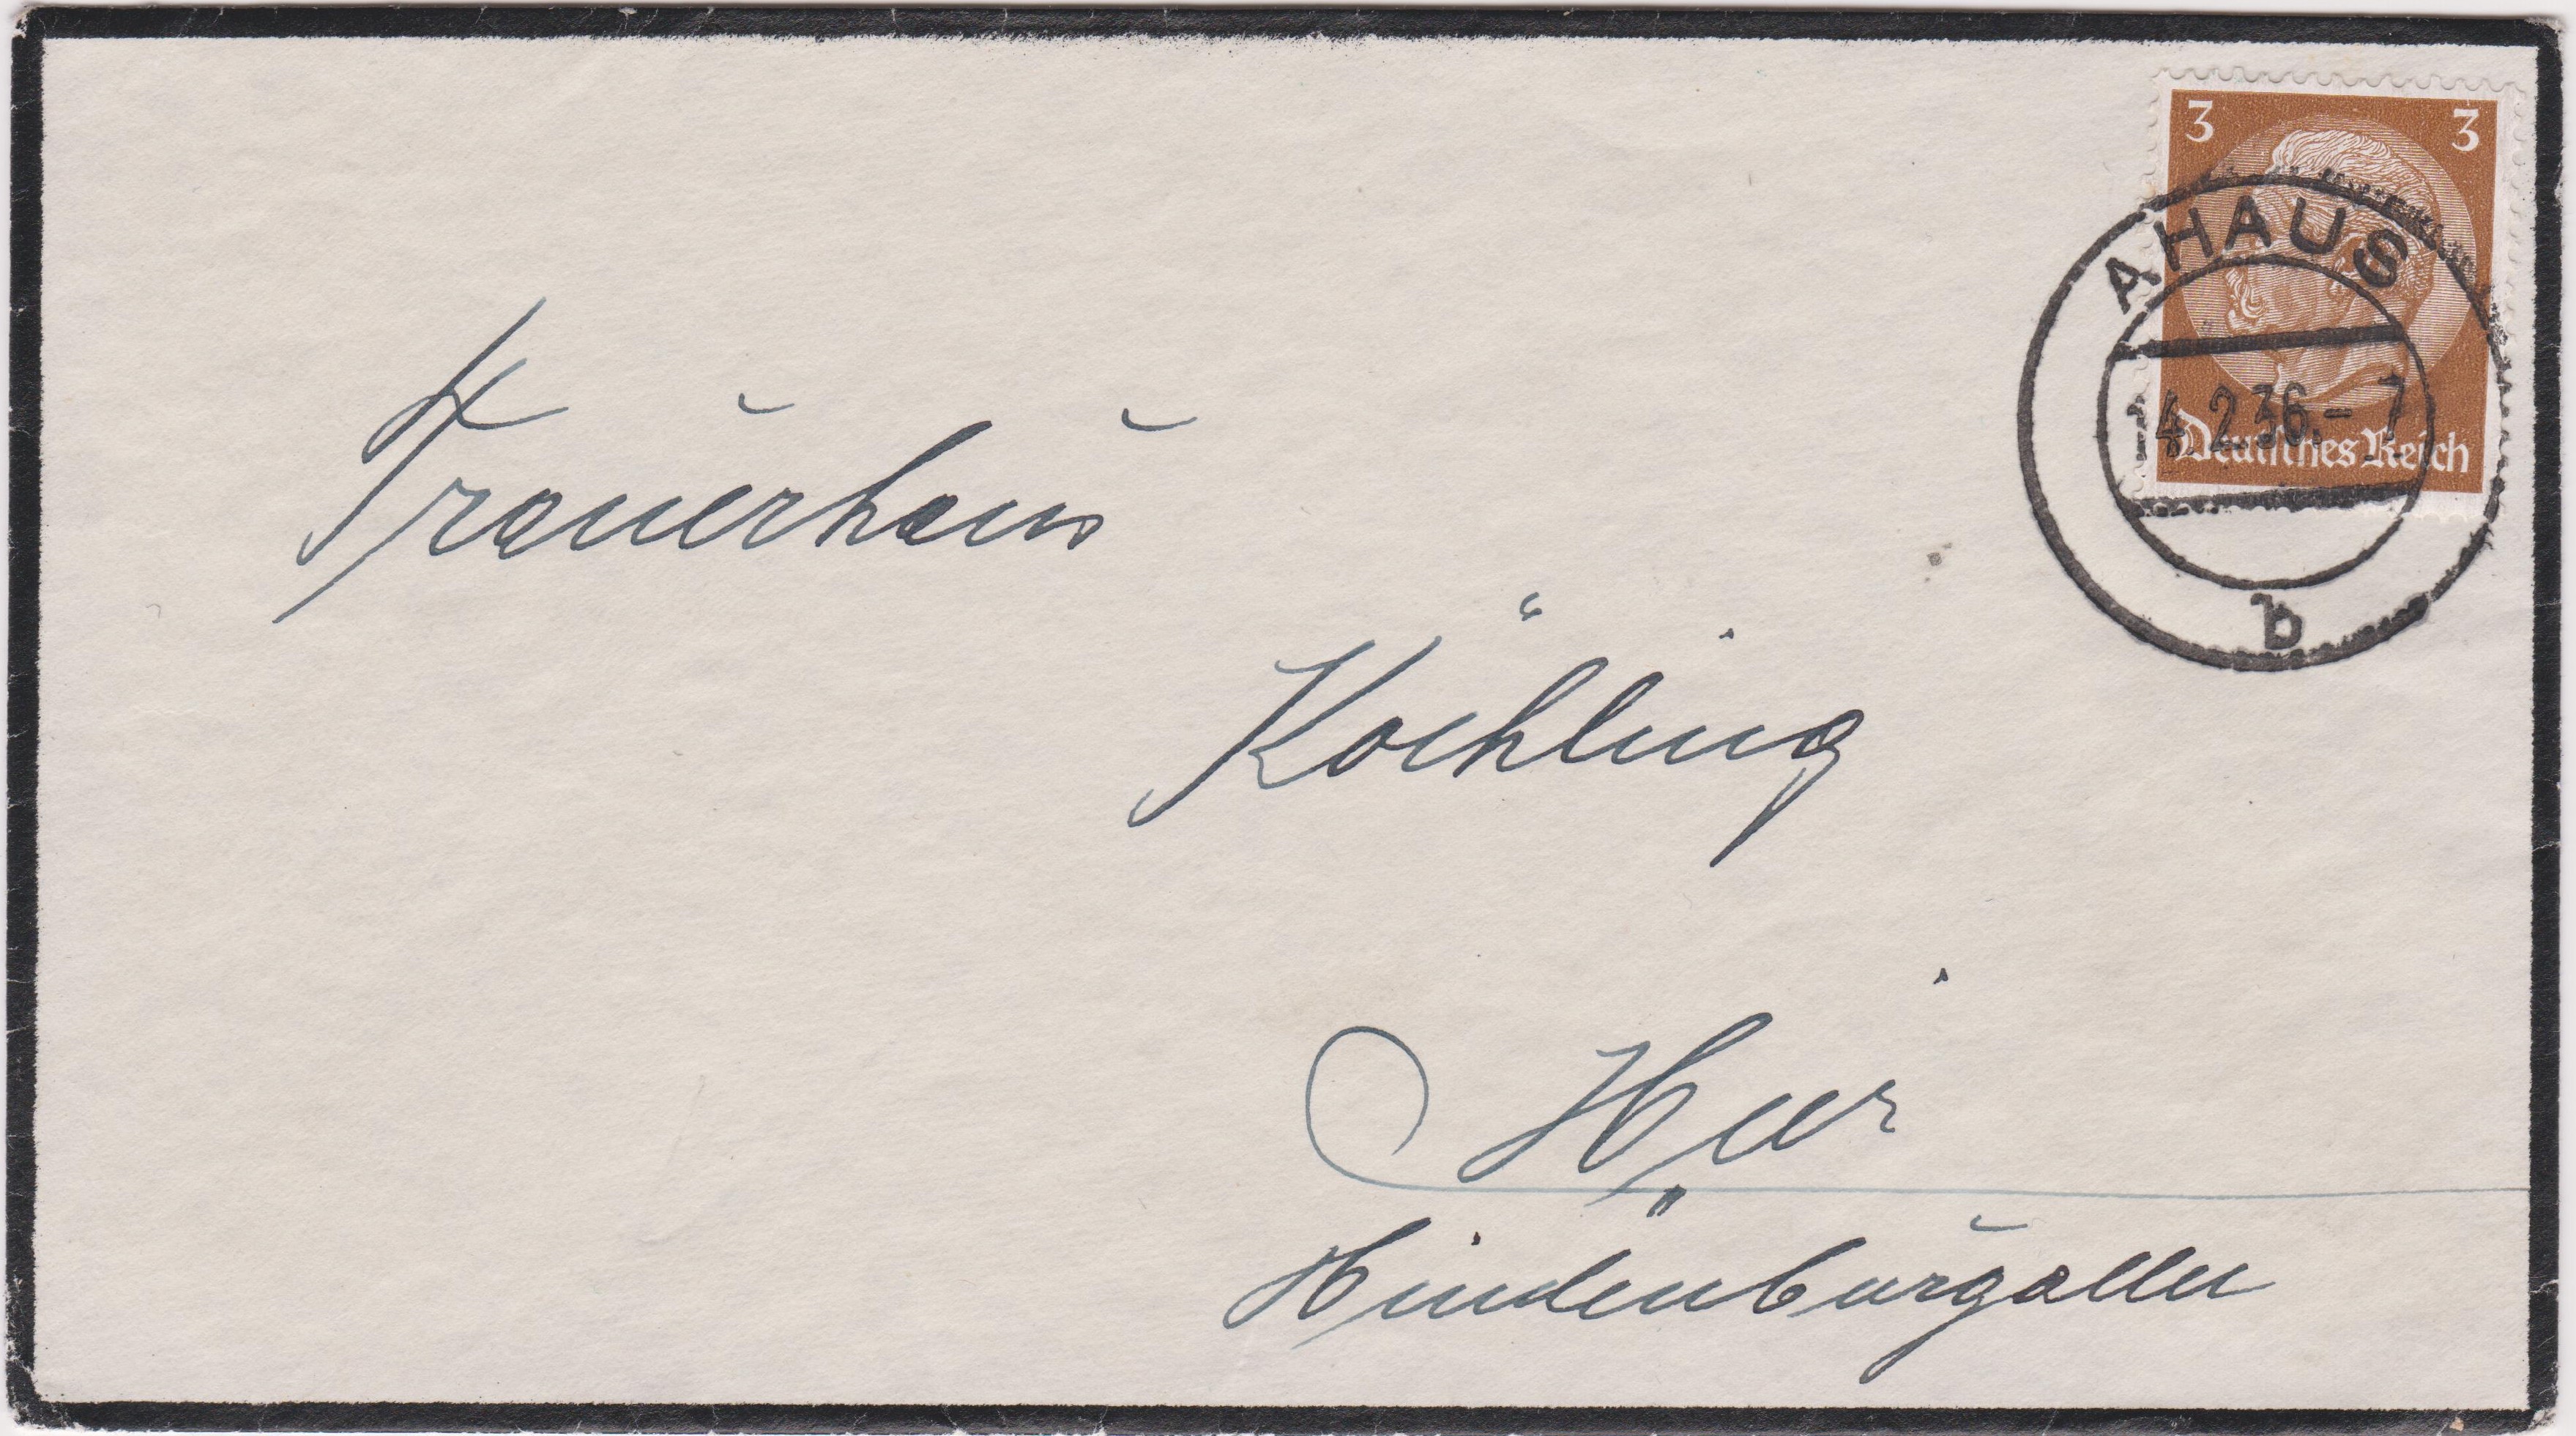 3 3
AHAUS
4.2.36.-7
Deutsches Reich
b
Trauerhaus
Köchling
Hier
Hindenburgallee